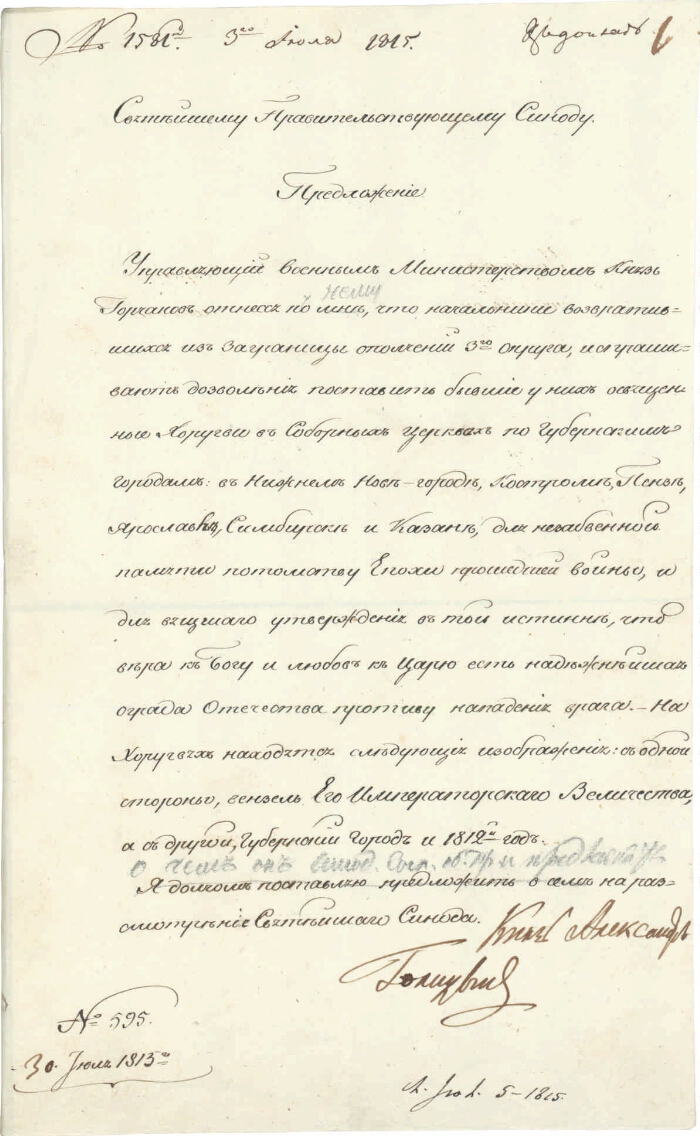 № 1581й. 3го Июля 1815.
Святѣйшему Правительствующему Синоду.
Предложеніе
Управляющій военнымъ Министерствомъ Князь
нему
Горчаковъ отнесся ко мнѣ, что начальники возвратив-
шихся изъ Заграницы ополченій 3го Округа, испраши-
ваютъ дозволѣнія поставить бывшіе у нихъ освящен-
ные Хоругви въ Соборныхъ Церквахъ по Губернскимъ
городамъ: въ Нижнемъ Новѣ-городѣ, Костромѣ, Пензѣ,
Ярославлѣ, Симбирскѣ и Казанѣ, для незабвенной
памяти потомству Епохи прошедшей войны, и
для вящшаго утвержденія въ той истиннѣ, что
вѣра къ Богу и любовь къ Царю есть надѣжнѣйшая
ограда Отечества противу нападенія врага. – На
Хоругвяхъ находятся слѣдующія изображенія: съ одной
стороны, вензель Его Императорскаго Величества,
а съ другой, Губернскій Городъ и 1812й годъ.
о чемъ онъ
Я долгомъ поставляю предложить о семъ на раз-
смотрѣніе Святѣйшаго Синода. Князь Александръ
Голицынъ
№ 595.
30. Іюля 1815го
5-1815.